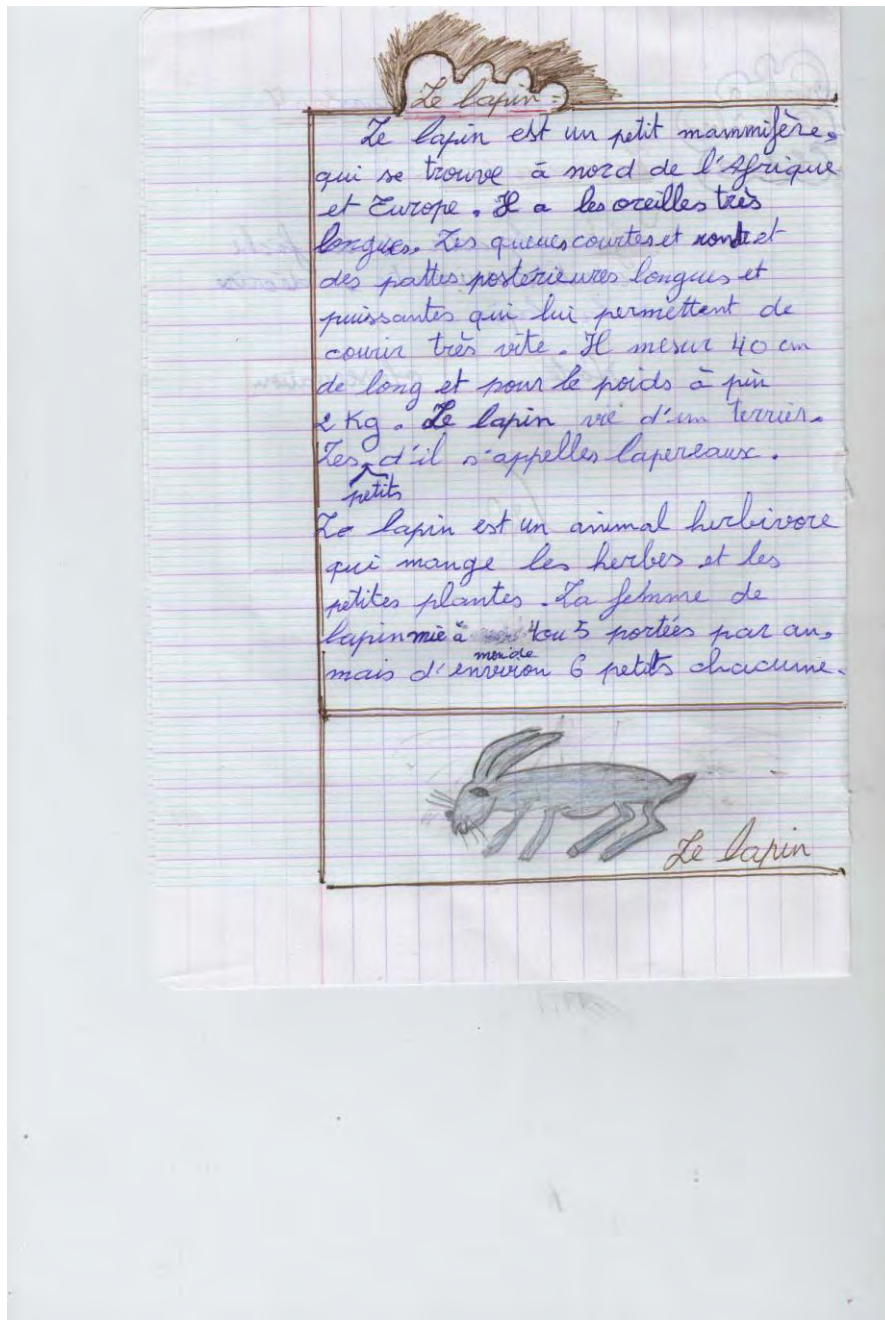 Le lapin :
Le lapin est un petit mammifère,
qui se trouve à nord de l'Afrique
et Europe. Il a les oreilles très
longues. Les queues courtes et ronde et
des pattes postérieures longues et
puissantes qui lui permettent de
courir très vite. Il mesur 40 cm
de long et pour le poids à pin
2 Kg. Le lapin vie d'un terrier.
Les petits d'il s'appelles lapereaux.
Le lapin est un animal herbivore
qui mange les herbes et les
petites plantes. La femme de
lapin mie à 4 ou 5 portées par an,
mais d'environ 6 petits chacune.
Le lapin